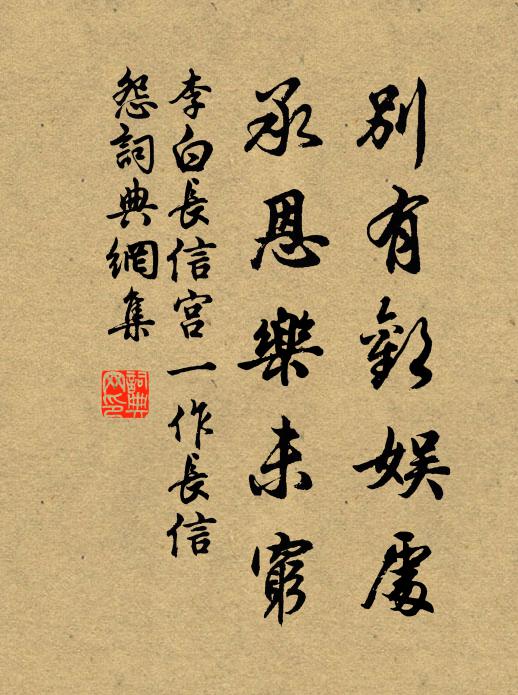 別有歡娛處
承恩樂未窮
李白長信宮一作長信
怨詞典網集
詞典網印